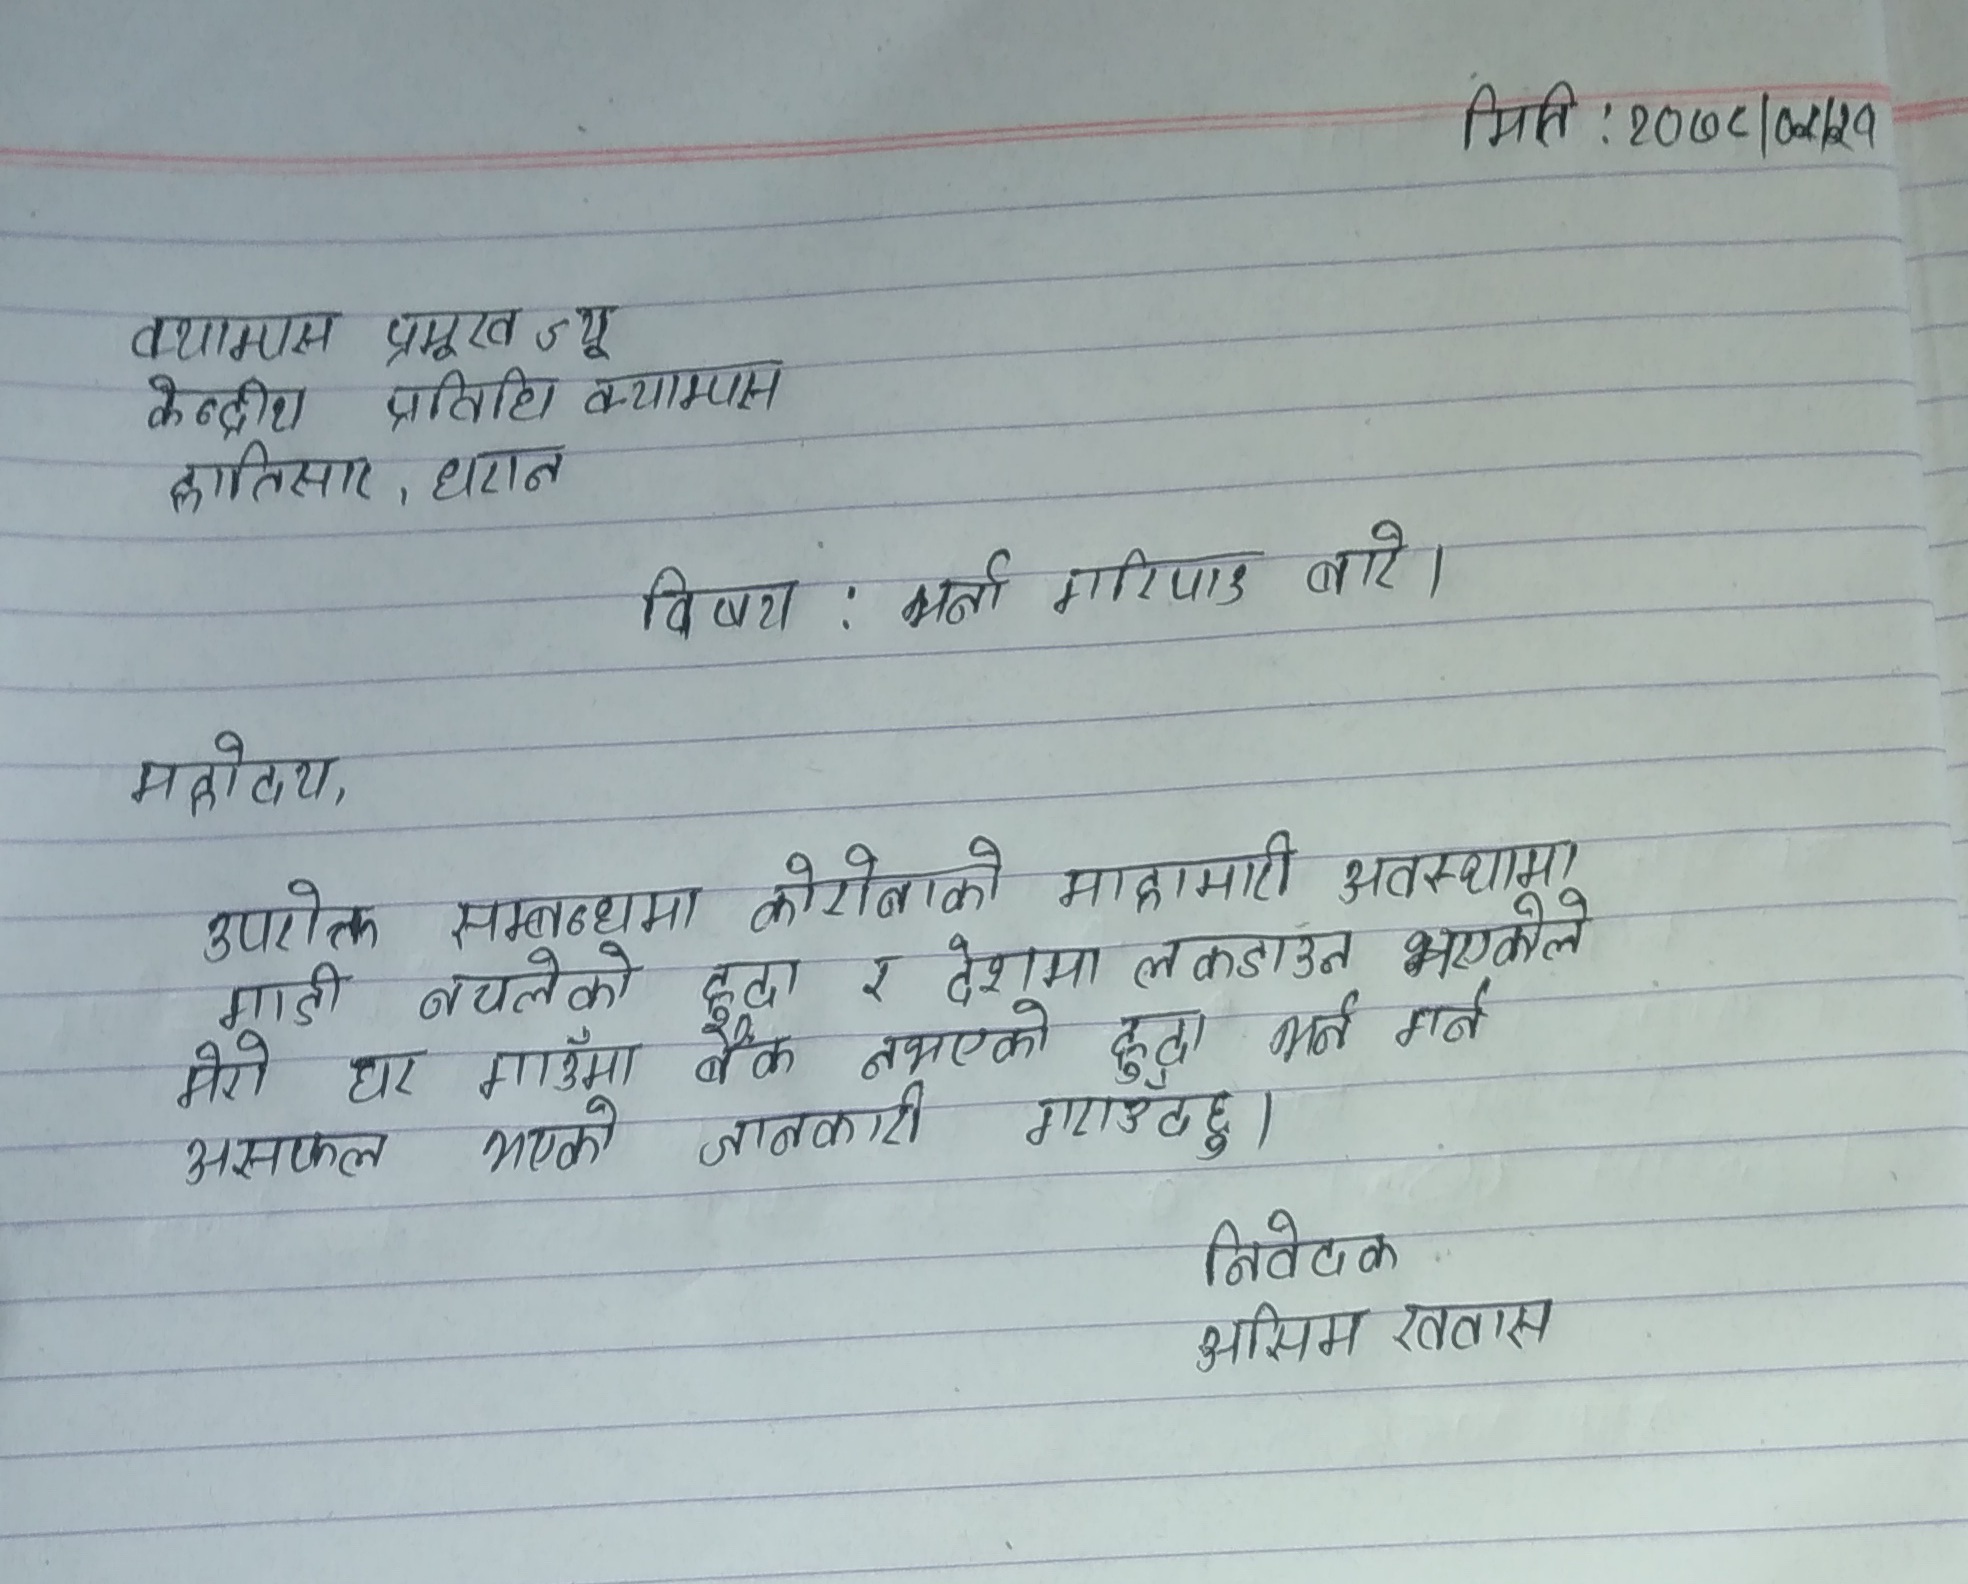 मिति : २०७८/०२/२१
क्याम्पस प्रमूख ज्यू
केन्द्रीय प्रविधि क्याम्पस
हात्तिसार, धरान
विषय : भर्ना गरिपाउ बारे।
महोदय,
उपरोक्त सम्बन्धमा कोरोनाको माहामारी अवस्थामा
गाडी नचलेको हुदा र देशमा लकडाउन भएकोले
मेरो घर गाउँमा बैंक नभएको हुदा भर्न गर्न
असफल भएको जानकारी गराउँदछु।
निवेदक
असिम खवास